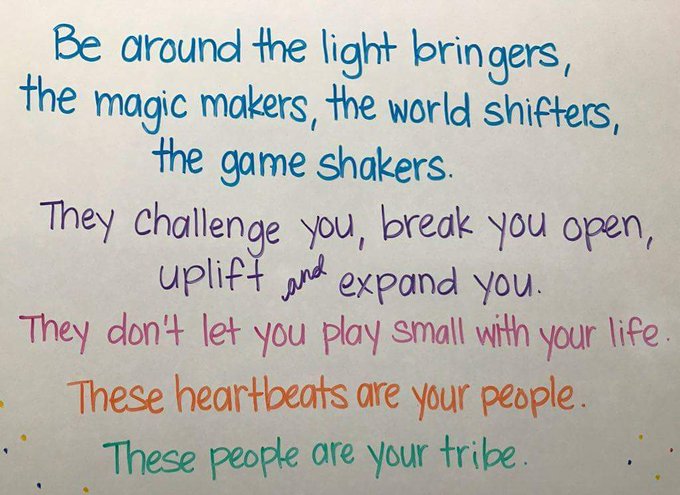 Be around the light bringers,
the magic makers, the world shifters,
the game shakers.
They challenge you, break you open,
uplift and expand you.
They don't let you play small with your life.
These heartbeats are your people.
These people are your tribe.